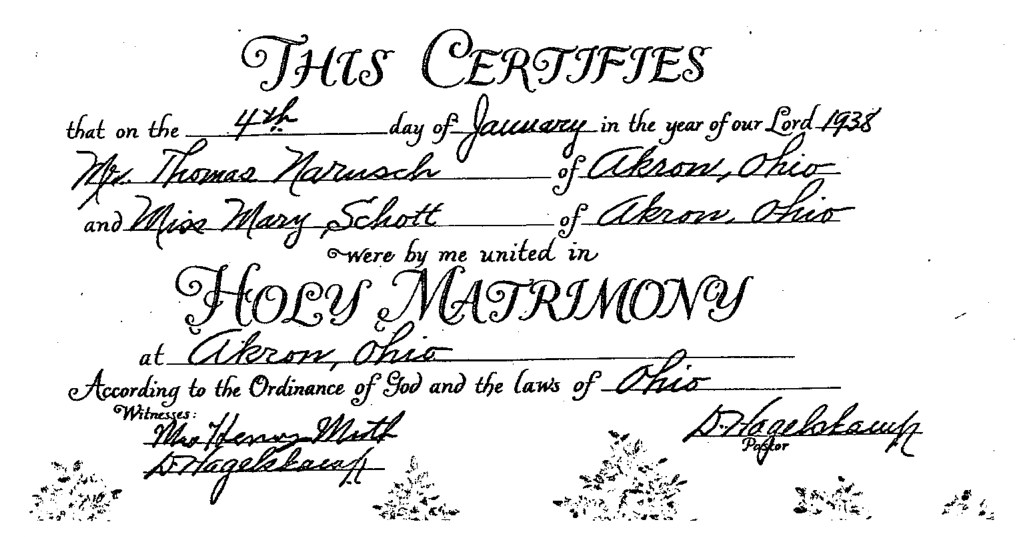 THIS CERTIFIES
that on the 4th day of January in the year of our Lord 1938
Mr. Thomas Narusch of Akron, Ohio
and Miss Mary Schott of Akron, Ohio
were by me united in
HOLY MATRIMONY
at Akron, Ohio
According to the Ordinance of God and the laws of Ohio
Witnesses:
Mrs Henry Muth
D. Hagelskamp
D. Hagelskamp
Pastor